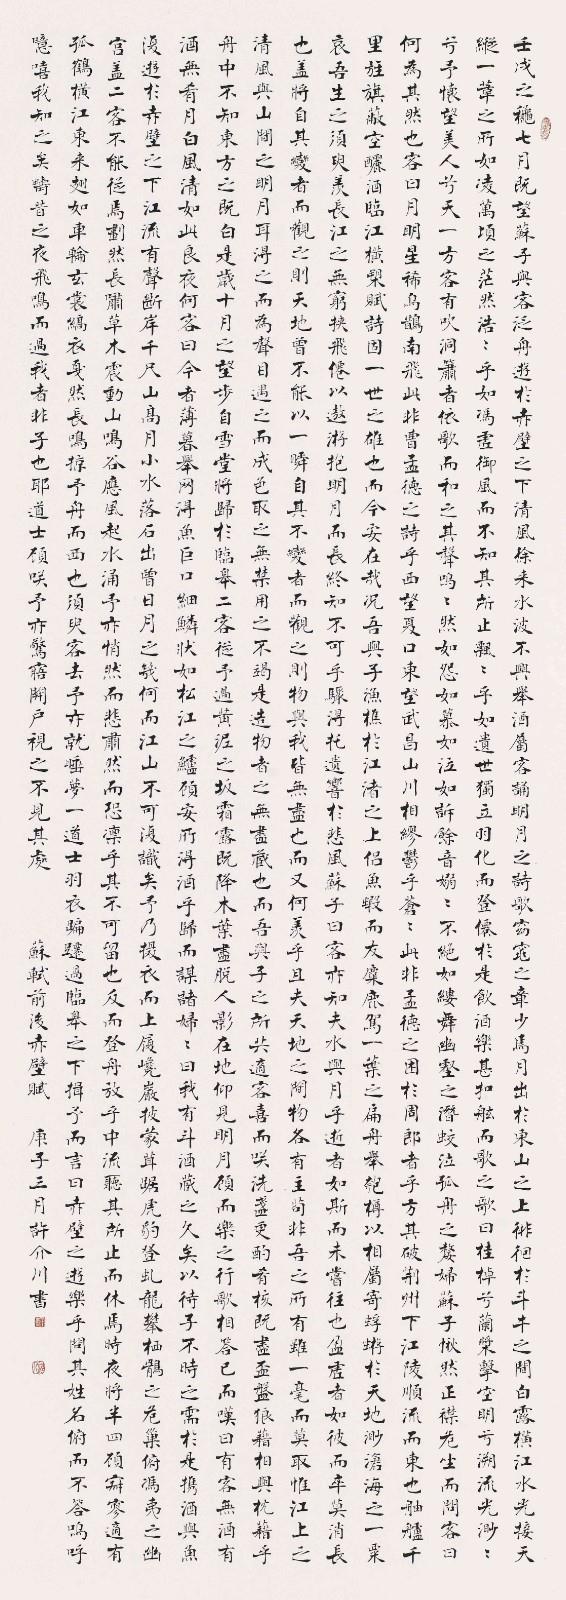 壬戌之穐七月既望蘇子與客泛舟遊於赤壁之下清風徐来水波不興舉酒屬客誦明月之詩歌窈窕之章少焉月出於東山之上徘徊於斗牛之間白露橫江水光接天
縱一葦之所如凌萬頃之茫然浩〻乎如馮虛御風而不知其所止飄〻乎如遺世獨立羽化而登僊於是飲酒樂甚扣舷而歌之歌曰桂棹兮蘭槳擊空明兮溯流光渺〻
兮予懷望美人兮天一方客有吹洞簫者依歌而和之其聲嗚〻然如怨如慕如泣如訴餘音嫋〻不絕如縷舞幽壑之潛蛟泣孤舟之嫠婦蘇子愀然正襟危坐而問客曰
何為其然也客曰月明星稀烏鵲南飛此非曹孟德之詩乎西望夏口東望武昌山川相繆鬱乎蒼〻此非孟德之困於周郎者乎方其破荊州下江陵順流而東也舳艫千
里旌旗蔽空釃酒臨江橫槊賦詩固一世之雄也而今安在哉况吾與子漁樵於江渚之上侶魚蝦而友麋鹿駕一葉之扁舟舉匏樽以相屬寄蜉蝣於天地渺滄海之一粟
哀吾生之須臾羨長江之無窮挾飛僊以遨游抱明月而長終知不可乎驟得托遺響於悲風蘇子曰客亦知夫水與月乎逝者如斯而未嘗往也盈虛者如彼而卒莫消長
也盖將自其變者而觀之則天地曾不能以一瞬自其不變者而觀之則物與我皆無盡也而又何羨乎且夫天地之間物各有主苟非吾之所有雖一毫而莫取惟江上之
清風與山間之明月耳得之而為聲目遇之而成色取之無禁用之不竭是造物者之無盡藏也而吾與子之所共適客喜而咲洗盞更酌肴核既盡盃盤狼藉相與枕藉乎
舟中不知東方之既白是歲十月之望步自雪堂將歸於臨皋二客從予過黃泥之坂霜露既降木葉盡脫人影在地仰見明月顧而樂之行歌相答已而嘆曰有客無酒有
酒無肴月白風清如此良夜何客曰今者薄暮舉网得魚巨口細鱗狀如松江之鱸顧安所得酒乎歸而謀諸婦〻曰我有斗酒藏之久矣以待子不時之需於是攜酒與魚
復遊於赤壁之下江流有聲斷岸千尺山高月小水落石出曾日月之幾何而江山不可復識矣予乃攝衣而上履巉巖披蒙茸踞虎豹登虬龍攀栖鶻之危巢俯馮夷之幽
宮盖二客不能從焉劃然長嘯草木震動山鳴谷應風起水涌予亦悄然而悲肅然而恐凜乎其不可留也反而登舟放乎中流聽其所止而休焉時夜將半四顧寂寥適有
孤鶴橫江東来翅如車輪玄裳縞衣戛然長鳴掠予舟而西也須臾客去予亦就睡夢一道士羽衣蹁躚過臨皋之下揖予而言曰赤壁之遊樂乎問其姓名俯而不答嗚呼
噫嘻我知之矣疇昔之夜飛鳴而過我者非子也耶道士顧咲予亦驚寤開戶視之不見其處 蘇軾前後赤壁賦 庚子三月許介川書